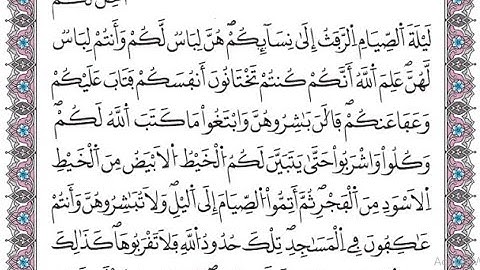 لَيْلَةَ اَ۬لصِّيَامِ اِ۬لرَّفَثُ إِلَىٰ نِسَآئِكُمْۖ هُنَّ لِبَاسٞ لَّكُمْ وَأَنتُمْ لِبَاسٞ
لَّهُنَّۖ عَلِمَ اَ۬للَّهُ أَنَّكُمْ كُنتُمْ تَخْتَانُونَ أَنفُسَكُمْ فَتَابَ عَلَيْكُمْ
وَعَفَا عَنكُمْۖ فَالَٰنَ بَٰشِرُوهُنَّ وَابْتَغُواْ مَا كَتَبَ اَ۬للَّهُ لَكُمْۖ
وَكُلُواْ وَاشْرَبُواْ حَتَّىٰ يَتَبَيَّنَ لَكُمُ اُ۬لْخَيْطُ اُ۬لَابْيَضُ مِنَ اَ۬لْخَيْطِ
اِ۬لَاسْوَدِ مِنَ اَ۬لْفَجْرِۖ ثُمَّ أَتِمُّواْ اُ۬لصِّيَامَ إِلَى اَ۬ليْلِۖ وَلَا تُبَٰشِرُوهُنَّ وَأَنتُمْ
عَٰكِفُونَ فِے اِ۬لْمَسَٰجِدِۖ تِلْكَ حُدُودُ اُ۬للَّهِ فَلَا تَقْرَبُوهَاۖ كَذَٰلِكَ